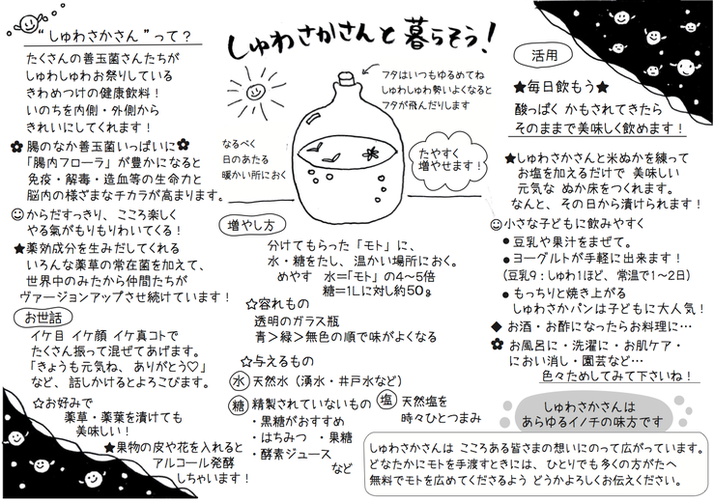 しゅわさかさんと暮らそう！
"しゅわさかさん"って？
たくさんの善玉菌さんたちが
しゅわしゅわお祭りしている
きわめつけの健康飲料！
いのちを内側・外側から
きれいにしてくれます！
✿腸のなか善玉菌いっぱいに✿
「腸内フローラ」が豊かになると
免疫・解毒・造血等の生命力と
脳内の様ざまなチカラが高まります。
☺からだすっきり、こころ楽しく
やる気がもりもりわいてくる！
★薬効成分を生みだしてくれる
いろんな薬草の常在菌を加えて、
世界中のみたから仲間たちが
ヴァージョンアップさせ続けています！
お世話
イケ目 イケ顔 イケ真コトで
たくさん振って混ぜてあげます。
「きょうも元気ね、ありがとう♡」
など、話しかけるとよろこびます。
☆お好みで
薬草・薬葉を漬けても
美味しい！
★果物の皮や花を入れると
アルコール発酵
しちゃいます！
フタはいつもゆるめてね
しゅわしゅわ勢いよくなると
フタが飛んだりします
なるべく
日のあたる
暖かい所におく
たやすく
増やせます！
増やし方
分けてもらった「モト」に、
水・糖をたし、温かい場所におく。
めやす 水=「モト」の4〜5倍
糖=1Lに対し約50g
☆容れもの
透明のガラス瓶
青>緑>無色の順で味がよくなる
☆与えるもの
水 天然水（湧水・井戸水など）
糖 精製されていないもの
・黒糖がおすすめ
・はちみつ ・果糖
・酵素ジュース
など
塩 天然塩を
時々ひとつまみ
活用
★毎日飲もう★
酸っぱく かもされてきたら
そのままで美味しく飲めます！
★しゅわさかさんと米ぬかを練って
お塩を加えるだけで 美味しい
元気な ぬか床をつくれます。
なんと、その日から漬けられます！
☺小さな子どもに飲みやすく
●豆乳や果汁をまぜて。
●ヨーグルトが手軽に出来ます！
（豆乳9：しゅわ1ほど、常温で1〜2日）
●もっちりと焼き上がる
しゅわさかパンは子どもに大人気！
◆お酒・お酢になったらお料理に…
✿お風呂に・洗濯に・お肌ケア・
におい消し・園芸など…
色々ためしてみて下さいね！
しゅわさかさんは
あらゆるイノチの味方です
しゅわさかさんは こころある皆さまの想いにのって広がっています。
どなたかにモトを手渡すときには、ひとりでも多くの方がたへ
無料でモトを広めてくださるよう どうかよろしくお伝えください。